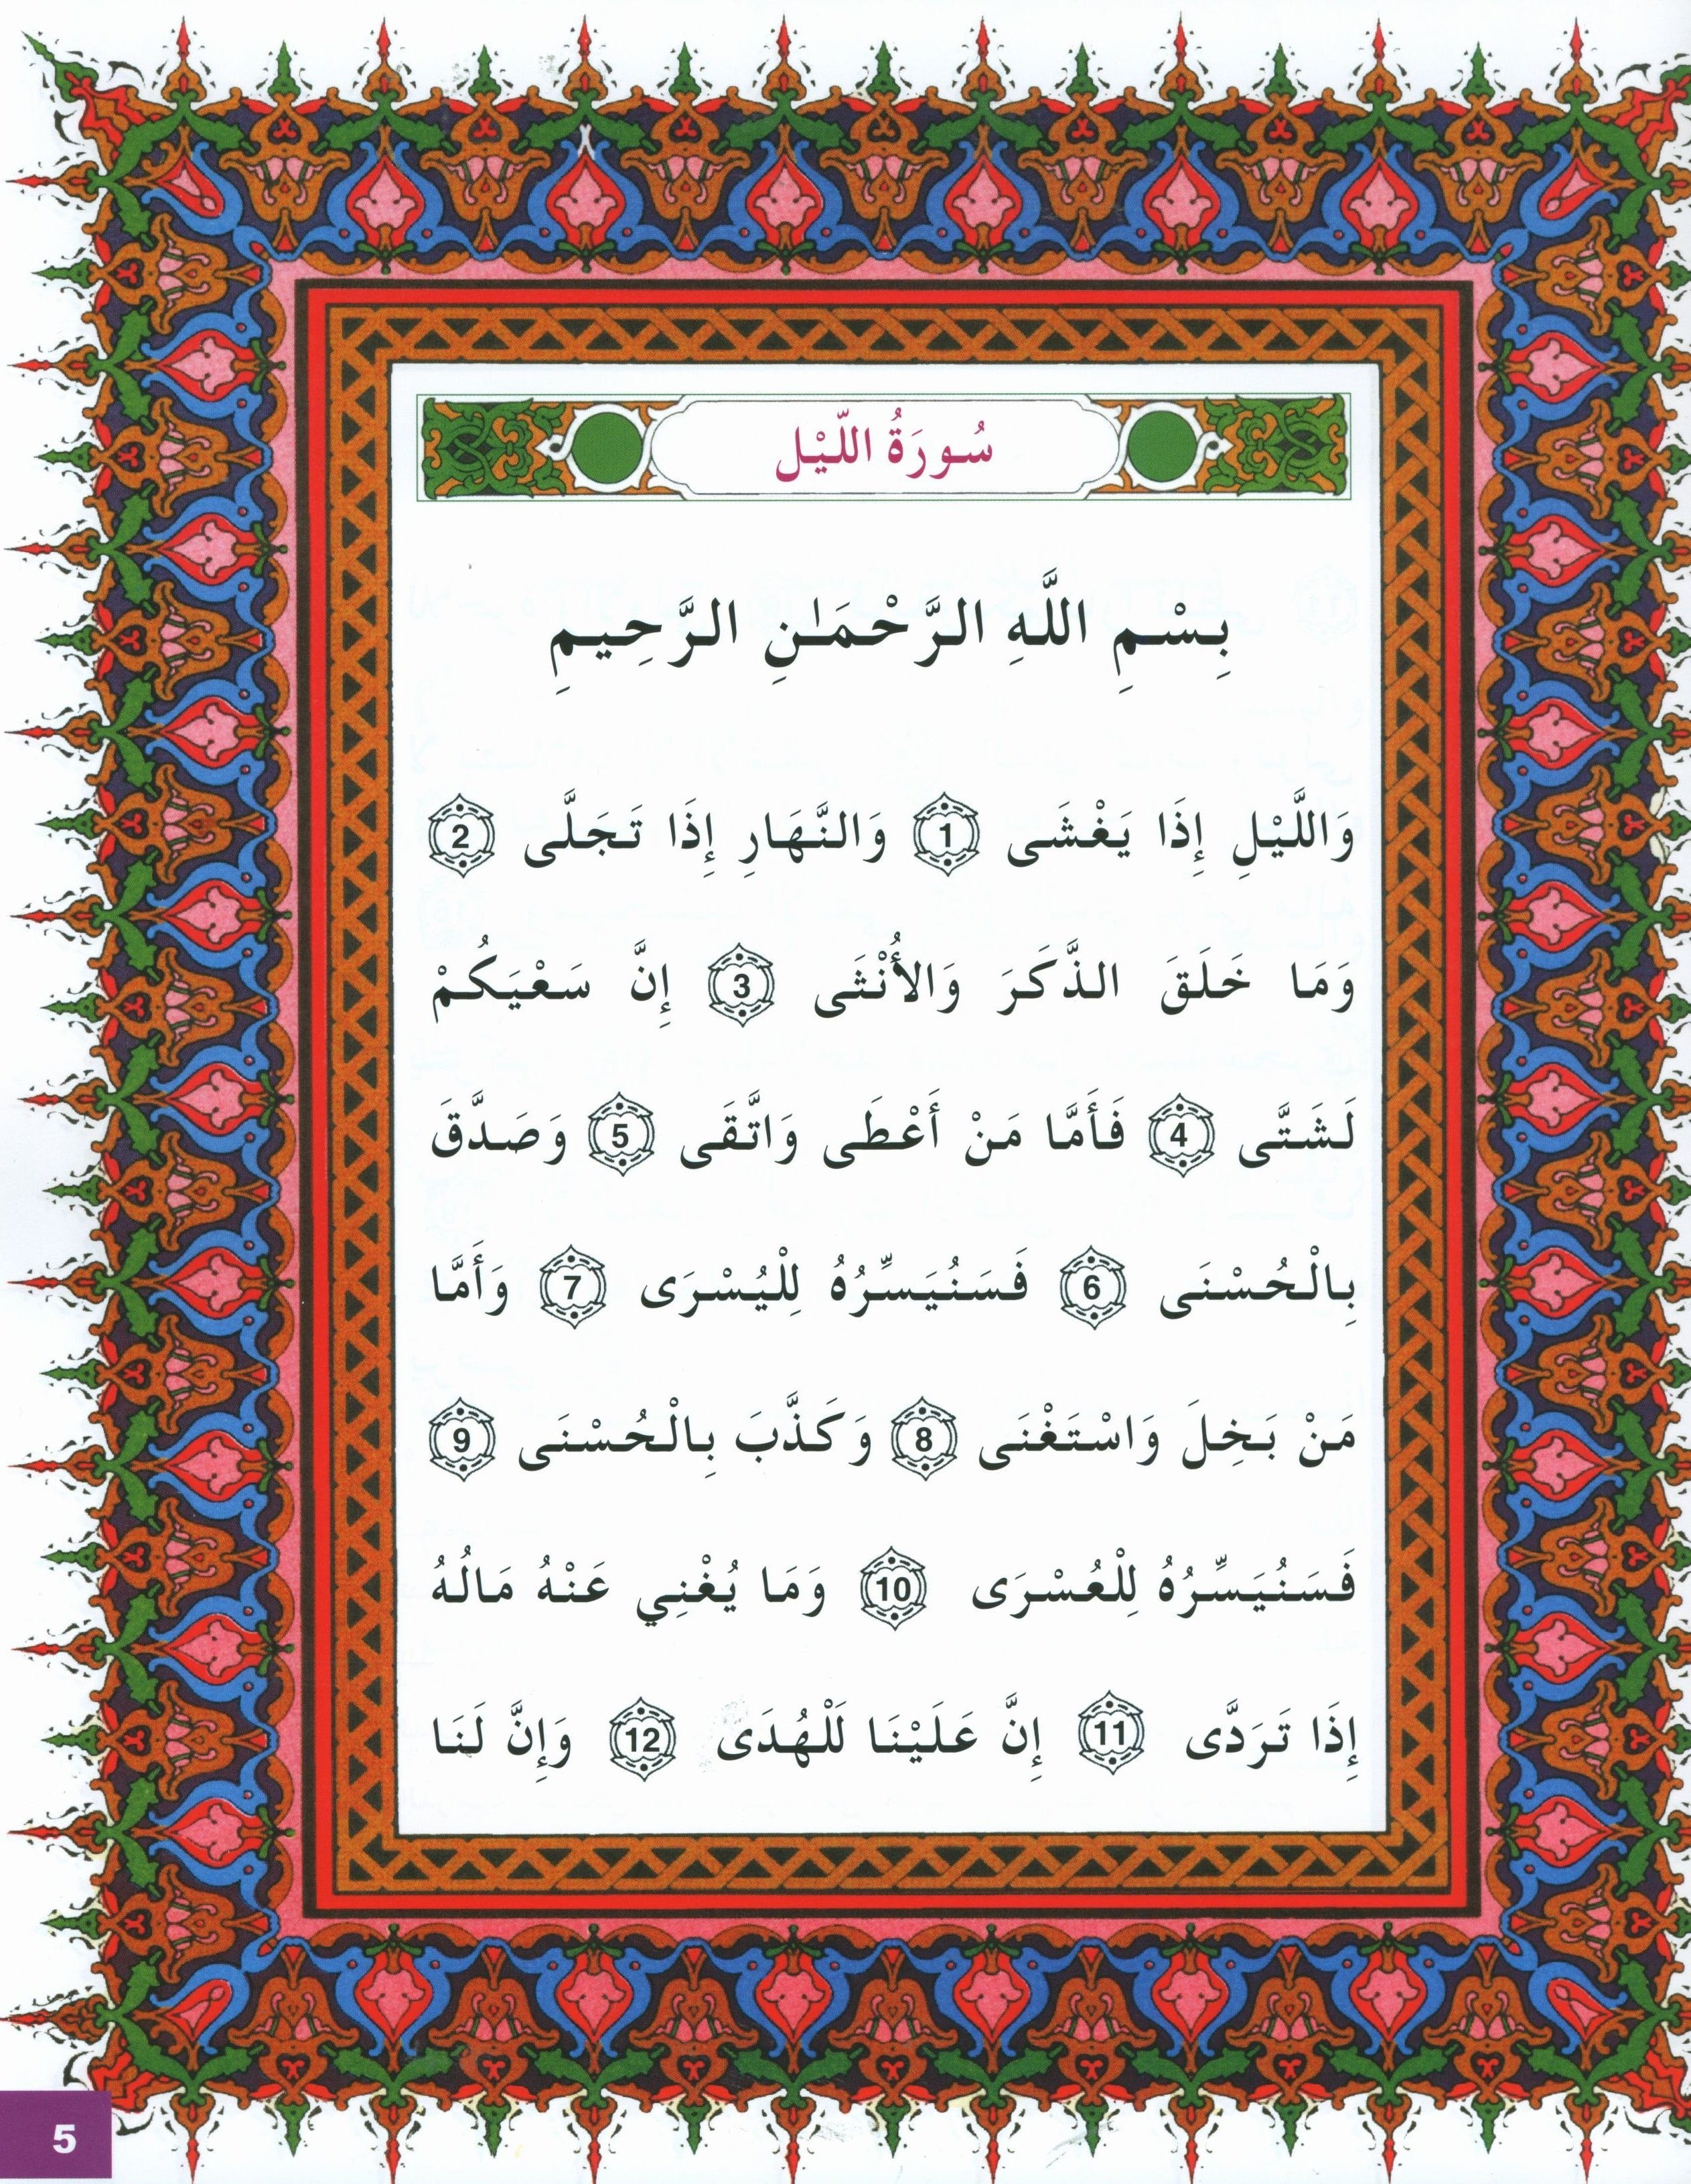 سُورَةُ اللّيْل
بِسْمِ اللَّهِ الرَّحْمَٰنِ الرَّحِيمِ
وَاللَّيْلِ إِذَا يَغْشَى 1 وَالنَّهَارِ إِذَا تَجَلَّى 2
وَمَا خَلَقَ الذَّكَرَ وَالأُنْثَى 3 إِنَّ سَعْيَكُمْ
لَشَتَّى 4 فَأَمَّا مَنْ أَعْطَى وَاتَّقَى 5 وَصَدَّقَ
بِالْحُسْنَى 6 فَسَنُيَسِّرُهُ لِلْيُسْرَى 7 وَأَمَّا
مَنْ بَخِلَ وَاسْتَغْنَى 8 وَكَذَّبَ بِالْحُسْنَى 9
فَسَنُيَسِّرُهُ لِلْعُسْرَى 10 وَمَا يُغْنِي عَنْهُ مَالُهُ
إِذَا تَرَدَّى 11 إِنَّ عَلَيْنَا لَلْهُدَى 12 وَإِنَّ لَنَا
5